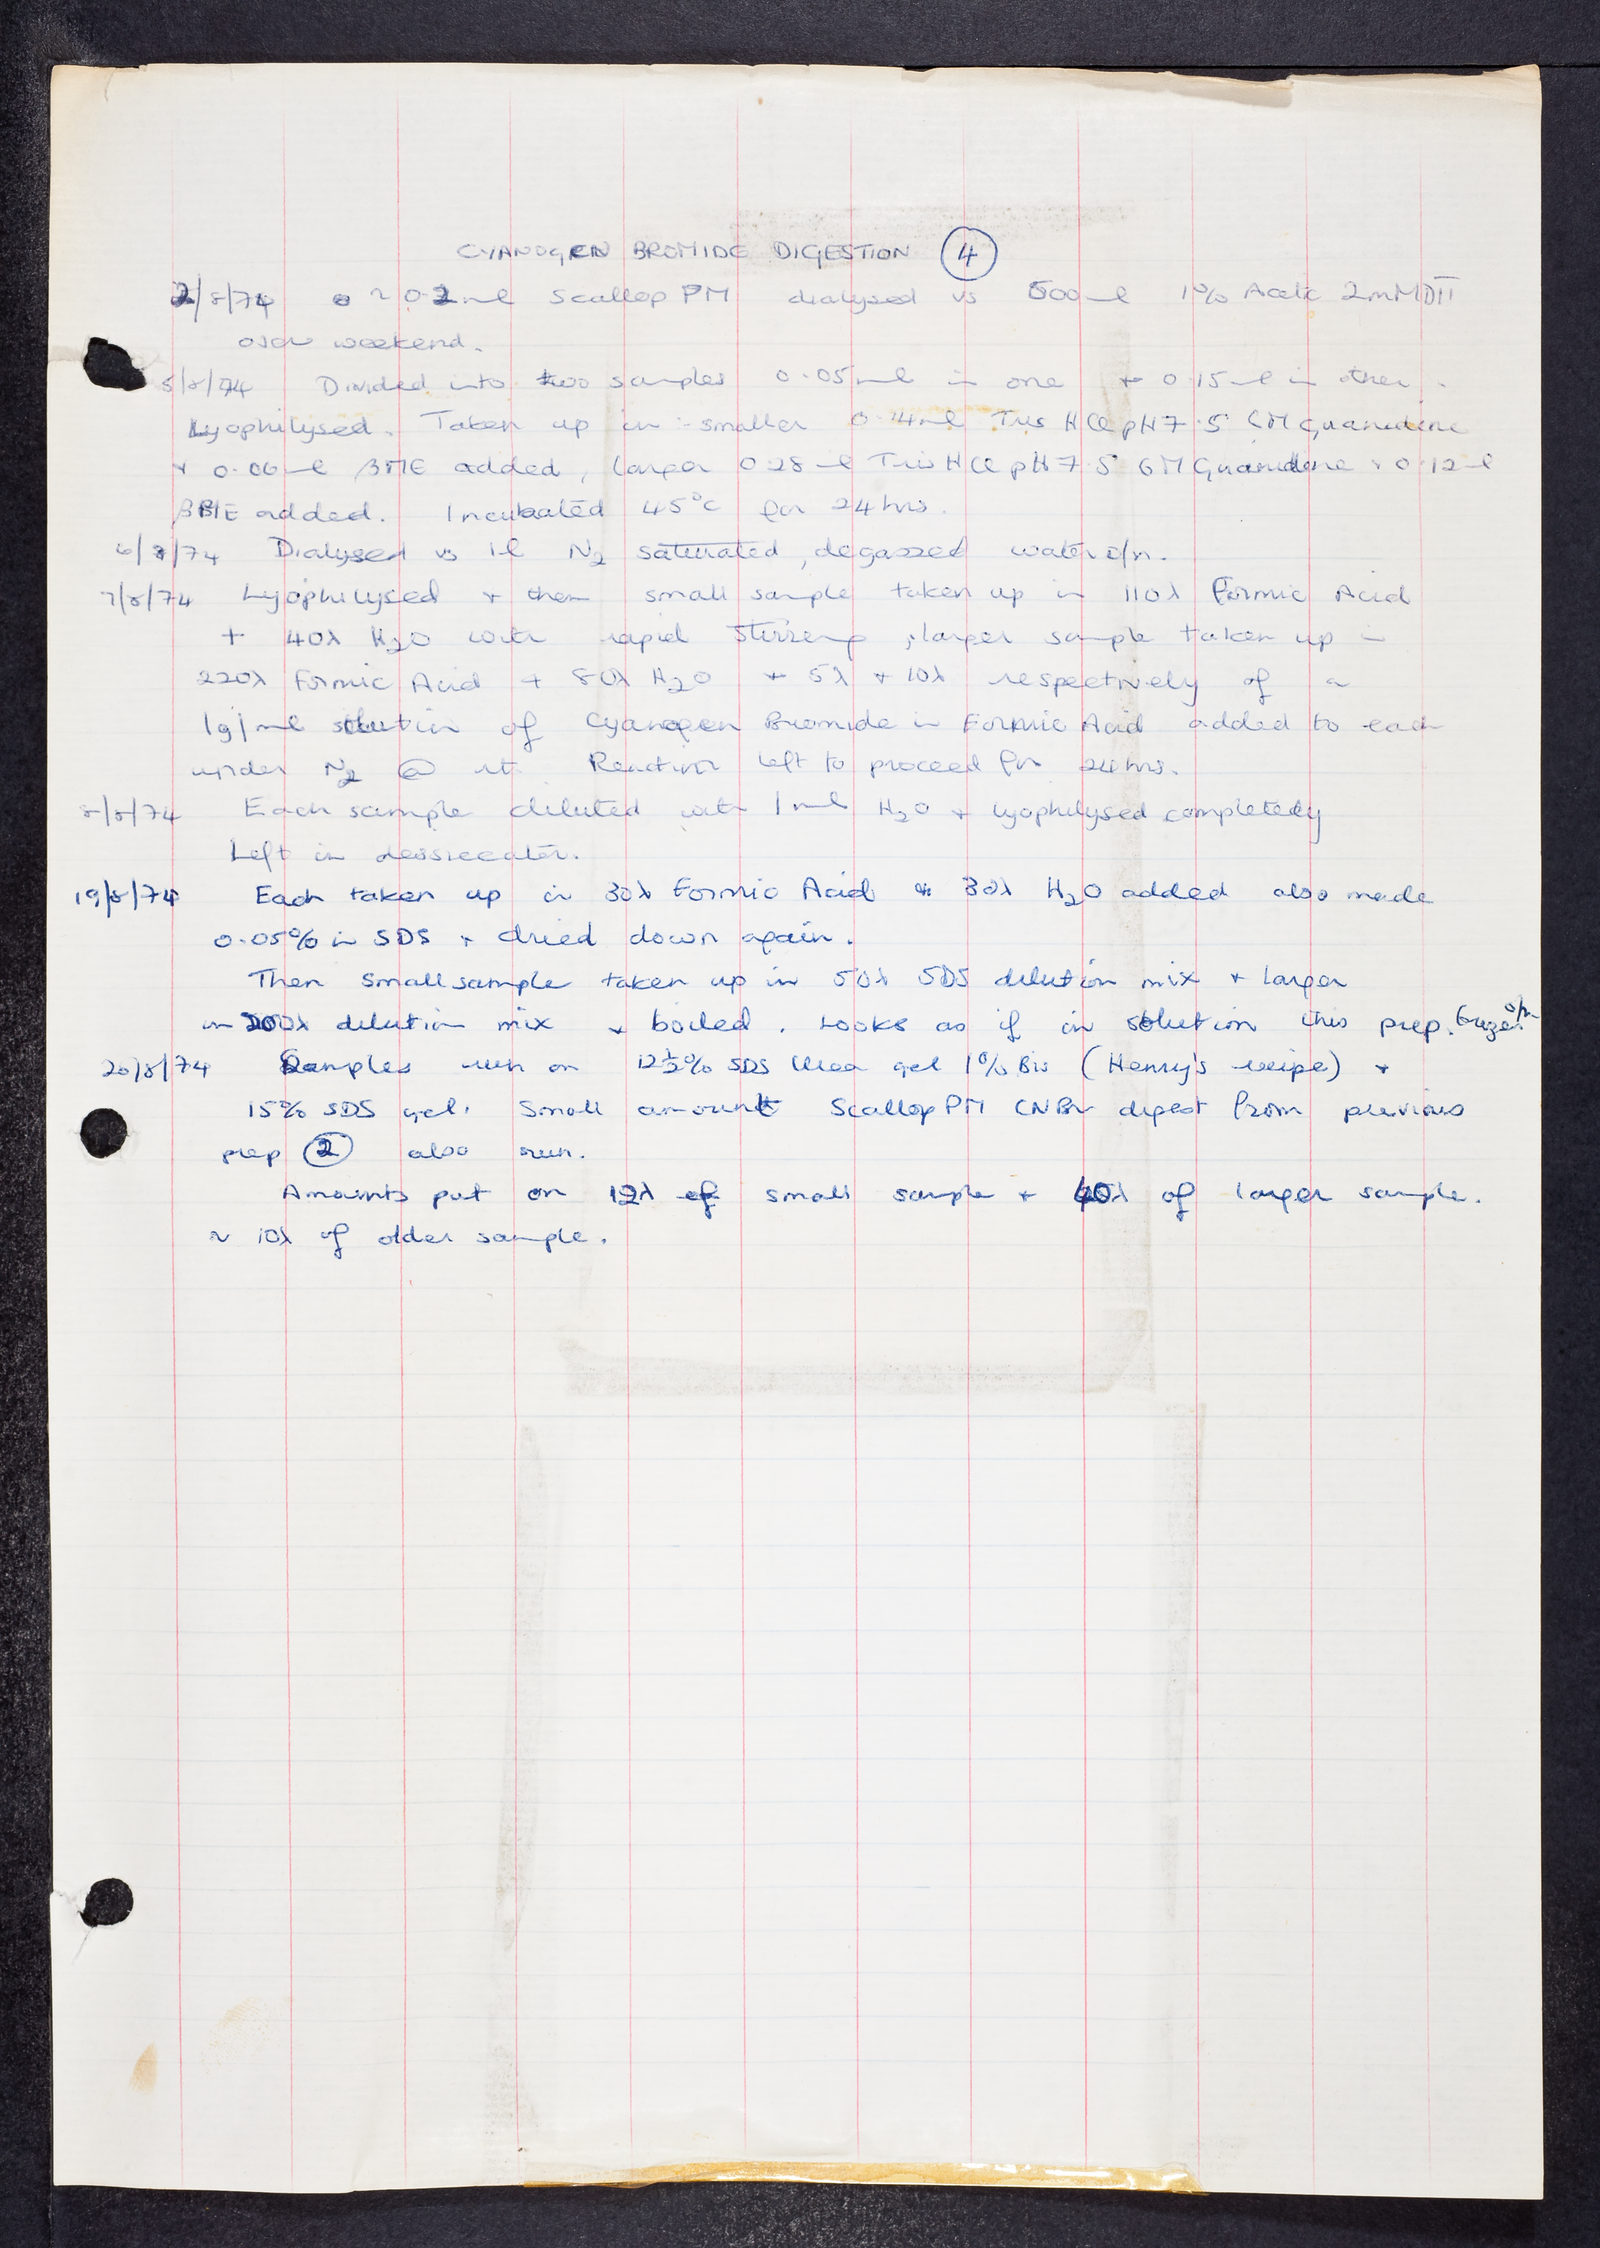 CYANOGEN BROMIDE DIGESTION ④
2/8/74 ~ 0.2ml Scallop PM dialysed vs 500ml 1% Acetic 2mM DTT
over weekend.
5/8/74 Divided into two samples 0.05ml in one + 0.15ml in other.
Lyophilysed. Taken up in :- smaller 0.14ml Tris HCl pH 7.5 6M Guanidine
+ 0.06ml βME added, larger 0.28ml Tris HCl pH 7.5 6M Guanidine + 0.12ml
βME added. Incubated 45°C for 24hrs.
6/8/74 Dialysed vs 1l N₂ saturated, degassed water o/n.
7/8/74 Lyophilysed + then small sample taken up in 110λ Formic Acid
+ 40λ H₂O with rapid stirring, larger sample taken up in
220λ Formic Acid + 80λ H₂O + 5λ + 10λ respectively of a
1g/ml solution of Cyanogen Bromide in Formic Acid added to each
under N₂ @ rt. Reaction left to proceed for 24hrs.
8/8/74 Each sample diluted with 1ml H₂O + lyophilysed completely
Left in dessiccator.
19/8/74 Each taken up in 30λ Formic Acid + 30λ H₂O added also made
0.05% in SDS + dried down again.
Then small sample taken up in 50λ SDS dilution mix + larger
in 200λ dilution mix + boiled. Looks as if in solution this prep. Froze o/n.
20/8/74 Samples run on 12½% SDS Urea gel 1% Bis (Henry's recipe) +
15% SDS gel. Small amount Scallop PM CNBr digest from previous
prep ② also run.
Amounts put on 12λ of small sample + 40λ of larger sample.
~ 10λ of older sample.